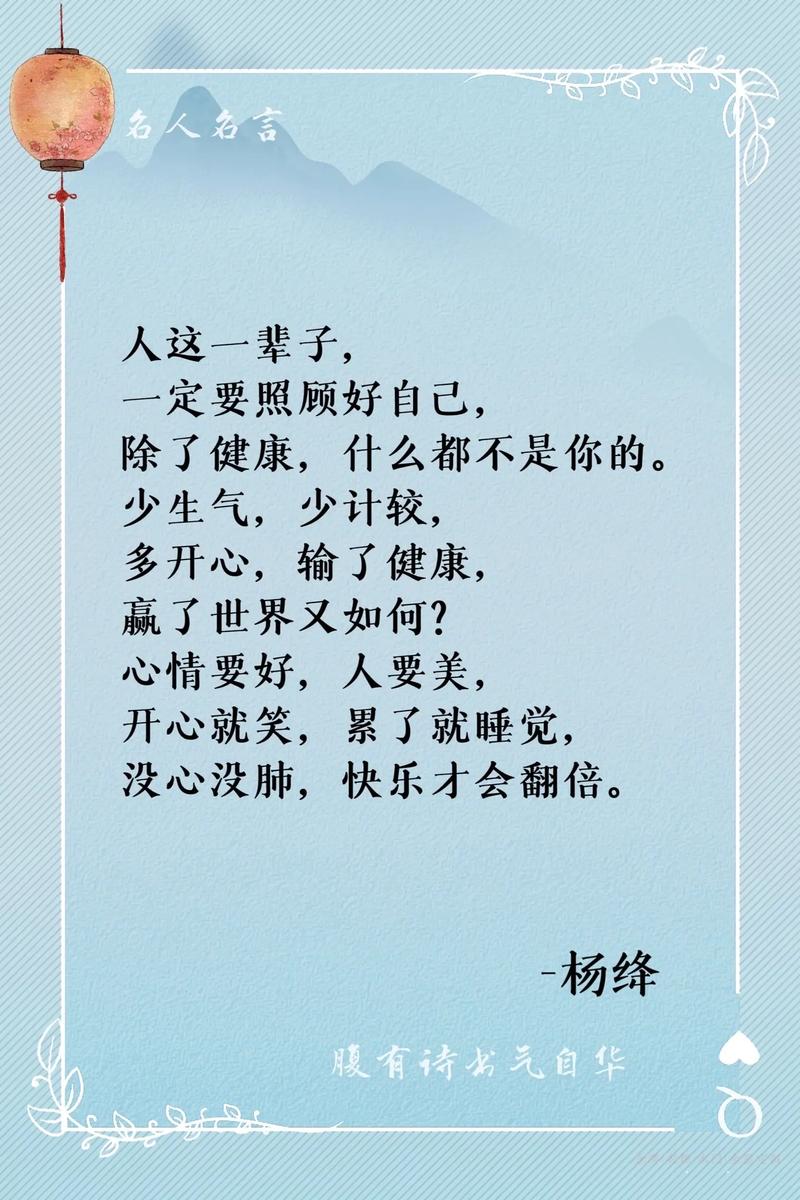 名人名言
人这一辈子，
一定要照顾好自己，
除了健康，什么都不是你的。
少生气，少计较，
多开心，输了健康，
赢了世界又如何？
心情要好，人要美，
开心就笑，累了就睡觉，
没心没肺，快乐才会翻倍。
-杨绛
腹有诗书气自华